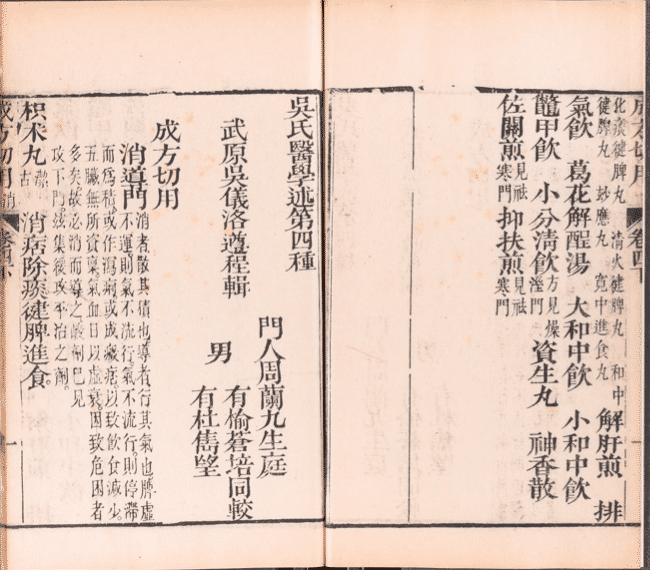 成方切用 卷四下
化痰健脾丸 清火健脾丸 和中
健脾丸 妙應丸 寬中進食丸
解肝煎 排
氣飲 葛花解酲湯 大和中飲 小和中飲
鼈甲飲 小分清飲 方見燥溼門 資生丸 神香散
佐關煎 見祛寒門 抑扶煎 見祛寒門
吳氏醫學述第四種
門人周蘭九生庭
武原吳儀洛遵程輯
有愉蒼培同較
男
有杜雋望
成方切用
消導門
消者散其積也導者行其氣也脾虛
不運則氣不流行氣不流行則停滯
而爲積或作瀉痢或成癥痞以致飲食減少
五臟無所資稟氣血日以虛衰因致危困者
多矣故必消而導之
攻下門茲集緩攻平治之劑
枳朮丸 潔古 消痞除痰健脾進食。
成方切用 消 卷四下 一